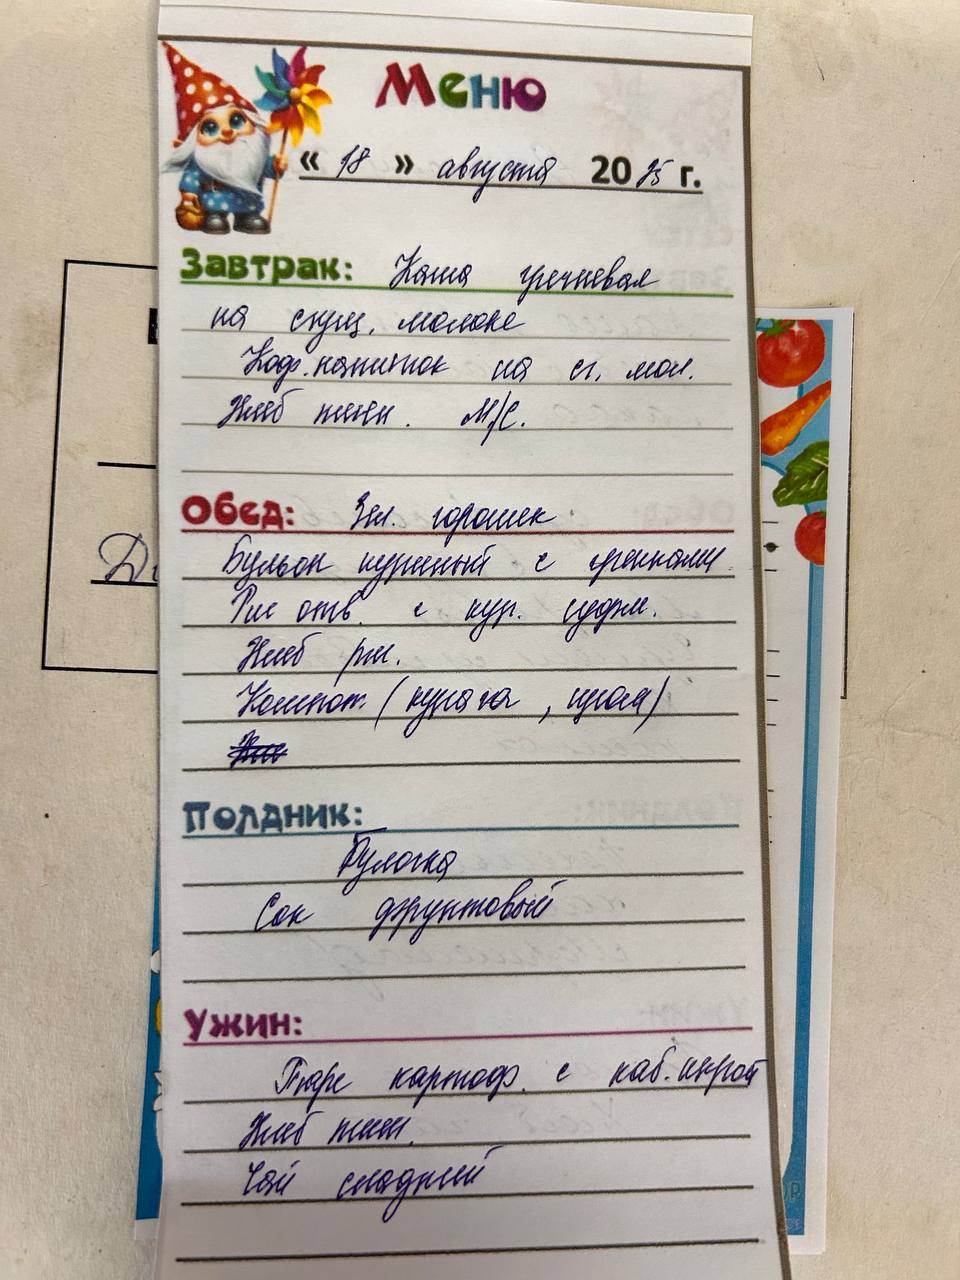 Меню
« 18 » августа 2025 г.
Завтрак: Каша гречневая
на сгущ. молоке
Коф. напиток на сг. мол.
Хлеб пшен. М/С.
Обед: Зел. горошек
Бульон куриный с гренками
Рис отв. с кур. суфле.
Хлеб рж.
Компот. (курага, изюм)
Полдник:
Булочка
Сок фруктовый
Ужин:
Пюре картоф. с каб. икрой
Хлеб пшен.
Чай сладкий